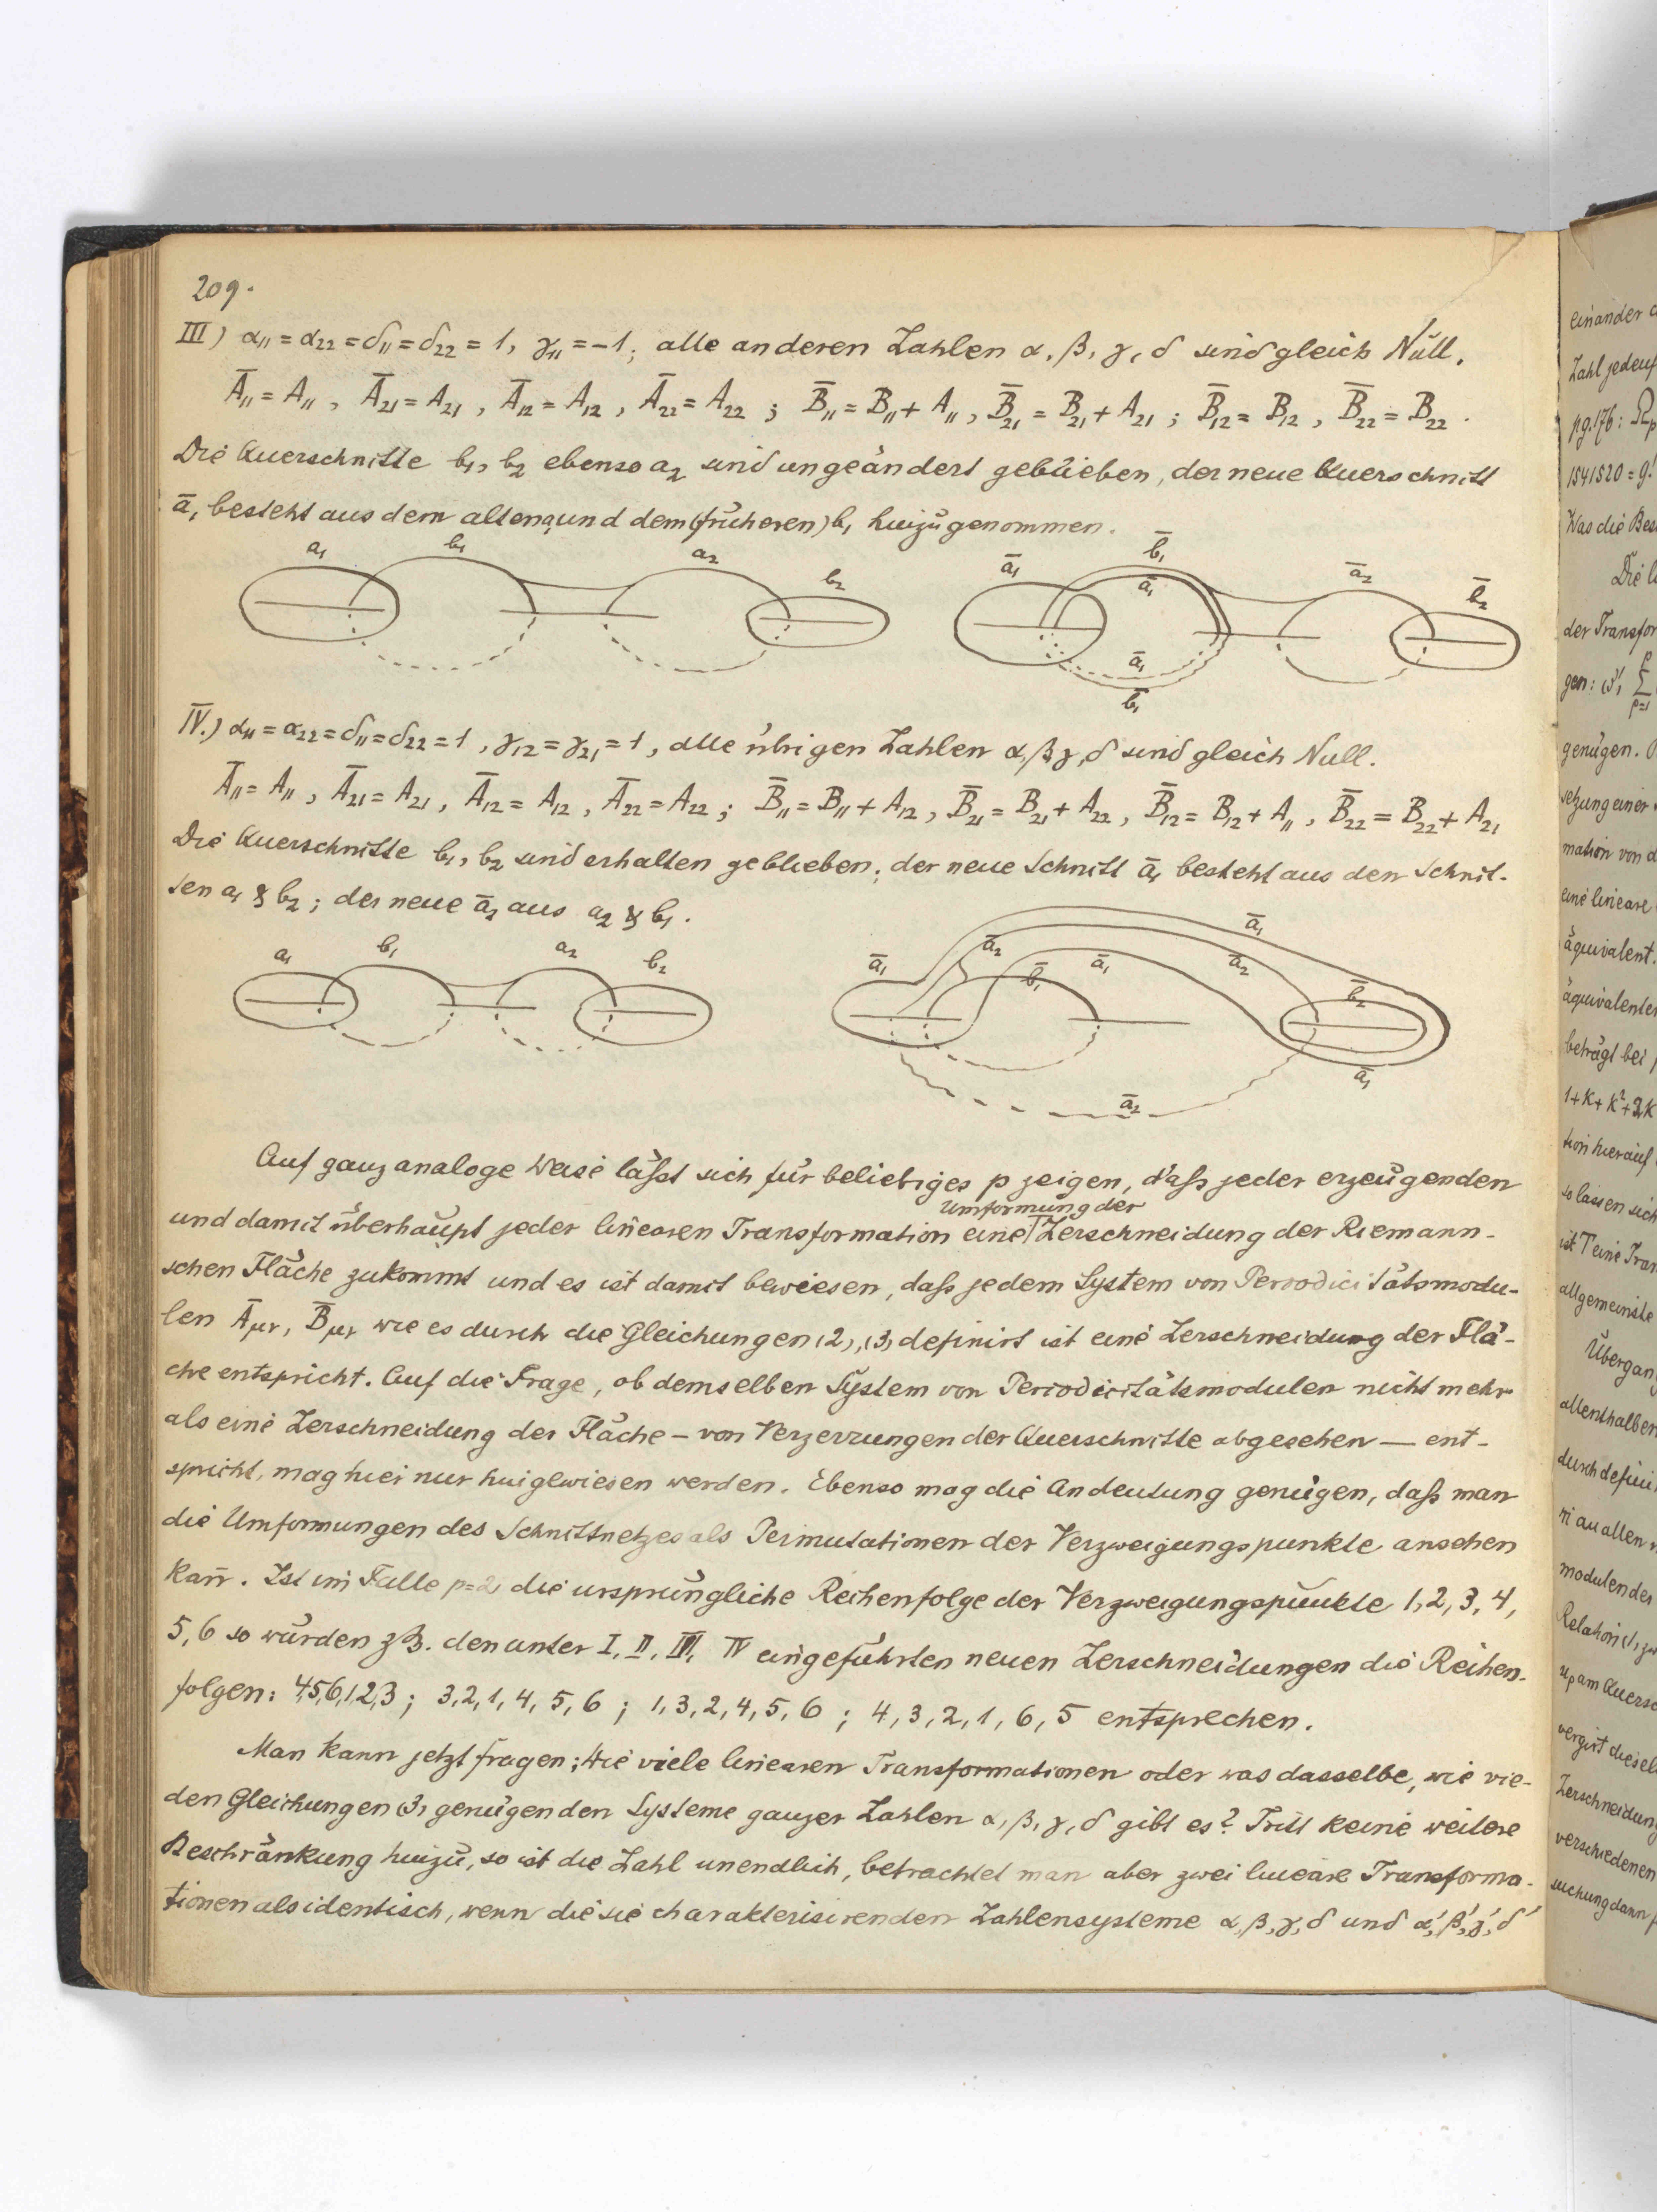 209.
III) α₁₁ = α₂₂ = δ₁₁ = δ₂₂ = 1, γ₁₁ = −1; alle anderen Zahlen α, β, γ, δ sind gleich Null.
Ā₁₁ = A₁₁, Ā₂₁ = A₂₁, Ā₁₂ = A₁₂, Ā₂₂ = A₂₂; B̄₁₁ = B₁₁ + A₁₁, B̄₂₁ = B₂₁ + A₂₁; B̄₁₂ = B₁₂, B̄₂₂ = B₂₂.
Die Querschnitte b₁, b₂ ebenso a₂ sind ungeändert geblieben, der neue Querschnitt
ā₁ besteht aus dem alten a₁ und dem (früheren) b₁ hinzugenommen.
a₁ b₁ a₂ b₂ ā₁ b̄₁ ā₁ ā₂ b̄₂
ā₁
b̄₁
IV.) α₁₁ = α₂₂ = δ₁₁ = δ₂₂ = 1, γ₁₂ = γ₂₁ = 1, alle übrigen Zahlen α, β, γ, δ sind gleich Null.
Ā₁₁ = A₁₁, Ā₂₁ = A₂₁, Ā₁₂ = A₁₂, Ā₂₂ = A₂₂; B̄₁₁ = B₁₁ + A₁₂, B̄₂₁ = B₂₁ + A₂₂, B̄₁₂ = B₁₂ + A₁₁, B̄₂₂ = B₂₂ + A₂₁
Die Querschnitte b₁, b₂ sind erhalten geblieben; der neue Schnitt ā₁ besteht aus den Schnit-
ten a₁ & b₂; der neue ā₂ aus a₂ & b₁.
a₁ b₁ a₂ b₂ ā₁ ā₂ b̄₁ ā₁ ā₂ ā₁ b̄₂
ā₁
ā₂
Auf ganz analoge Weise läßt sich für beliebiges p zeigen, daß jeder erzeugenden
Umformung der
und damit überhaupt jeder linearen Transformation eine Zerschneidung der Riemann-
schen Fläche zukommt und es ist damit bewiesen, daß jedem System von Periodicitätsmodu-
len Āμν, B̄μν wie es durch die Gleichungen (2), (3) definirt ist eine Zerschneidung der Flä-
che entspricht. Auf die Frage, ob demselben System von Periodicitätsmodulen nicht mehr
als eine Zerschneidung der Fläche – von Verzerrungen der Querschnitte abgesehen — ent-
spricht, mag hier nur hingewiesen werden. Ebenso mag die Andeutung genügen, daß man
die Umformungen des Schnittnetzes als Permutationen der Verzweigungspunkte ansehen
kan̄. Ist im Falle p=2 die ursprüngliche Reihenfolge der Verzweigungspunkte 1, 2, 3, 4,
5, 6 so würden z.B. den unter I, II, III, IV eingeführten neuen Zerschneidungen die Reihen-
folgen: 4,5,6,1,2,3; 3, 2, 1, 4, 5, 6; 1, 3, 2, 4, 5, 6; 4, 3, 2, 1, 6, 5 entsprechen.
Man kann jetzt fragen; Wie viele linearen Transformationen oder was dasselbe, wie vie-
den Gleichungen (3) genügenden Systeme ganzer Zahlen α, β, γ, δ gibt es? Tritt keine weitere
Beschränkung hinzu, so ist die Zahl unendlich, betrachtet man aber zwei lineare Transforma-
tionen als identisch, wenn die sie charakterisirenden Zahlensysteme α, β, γ, δ und α', β', γ', δ'
einander
Zahl jeden
pg. 176:
Was die
Die
der Transfor
gen:
genügen.
setzung einer
mation von
eine lineare
äquivalent.
äquivalenten
beträgt bei
1+k+k²+
tion hierauf
so lassen sich
ist T eine Tran
allgemeinste
Übergan
allenthalben
durch defini
modulen der
Relation
am Quersc
vergirt diesel
Zerschneidung
verschiedenen
suchung dann